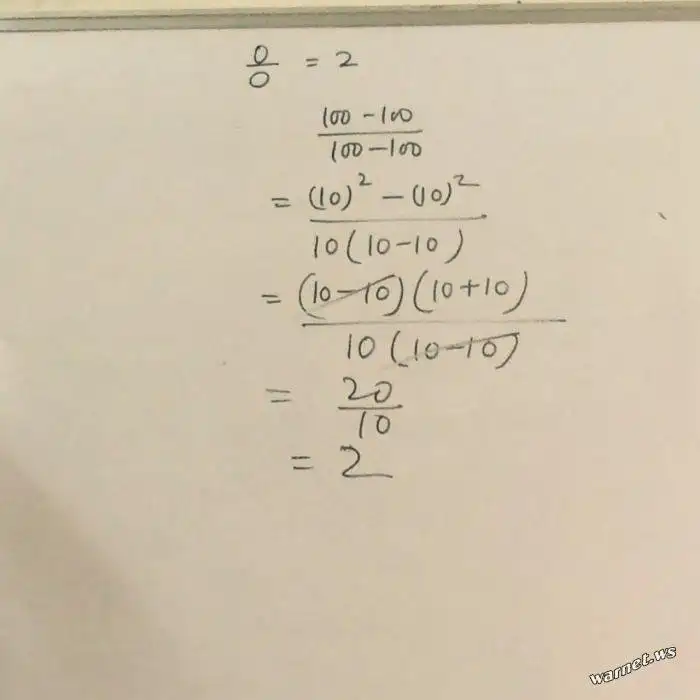 0/0 = 2
100 - 100 / 100 - 100
= (10)² - (10)² / 10(10-10)
= (10-10)(10+10) / 10(10-10)
= 20/10
= 2
warnet.ws